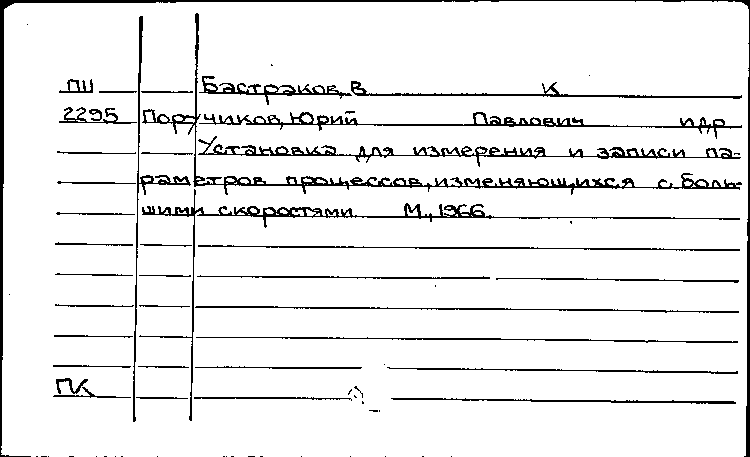 ПШ Бастраков, В К
2295 Поручиков, Юрий Павлович и др
Установка для измерения и записи па-
раметров процессов, изменяющихся с боль-
шими скоростями. М., 1966.
ПК